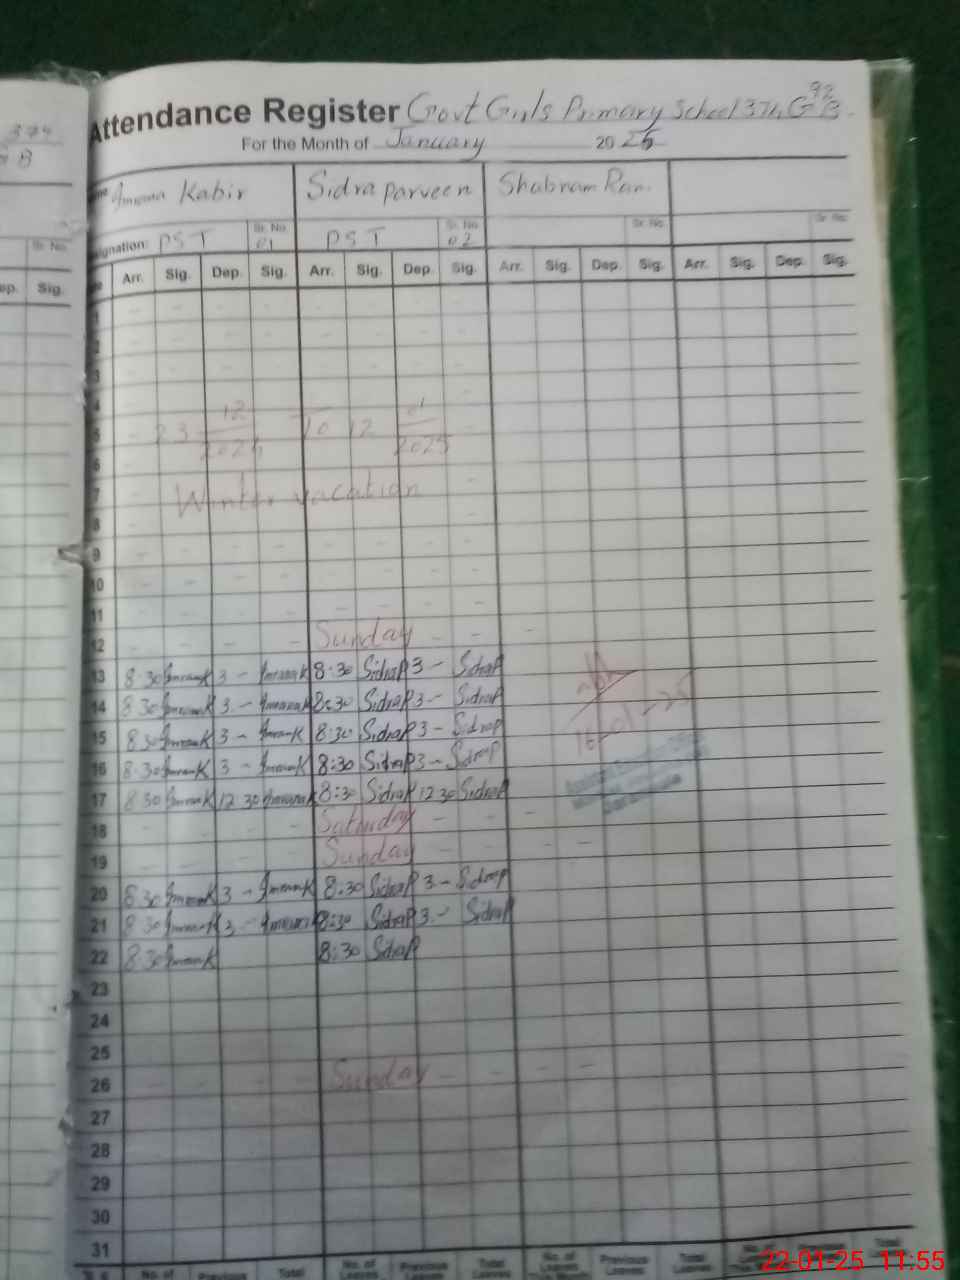 374
G B
92
Attendance Register Govt Girls Primary School 374 G B
For the Month of January 2025
Kabir Sidra parveen Shabnam Rani
Sr. No. Sr. No. Sr. No. Sr. No. Sr. No.
Designation: PST 01 PST 02
Dep. Sig. Arr. Sig. Dep. Sig. Arr. Sig. Dep. Sig. Arr. Sig. Dep. Sig. Arr. Sig. Dep. Sig.
1
2
3
4
5 23 12 2024 To 12 01 2025
6
7 Winter vacation
8
9
10
11
12 Sunday
13 8:30 3 - 8:30 SidraP 3 - SidraP
14 8:30 3 - 8:30 SidraP 3 - SidraP
15 8:30 3 - 8:30 SidraP 3 - SidraP
16 8:30 3 - 8:30 SidraP 3 - SidraP
16-01-25
17 8:30 12:30 8:30 SidraP 12:30 SidraP
18 Saturday
19 Sunday
20 8:30 3 - 8:30 SidraP 3 - SidraP
21 8:30 3 - 8:30 SidraP 3 - SidraP
22 8:30 8:30 SidraP
23
24
25
26 Sunday
27
28
29
30
31
No. of Previous Total No. of Leaves Previous Leaves Total Leaves No. of Leaves Previous Leaves Total Leaves No. of Previous Total
22-01-25 11:55